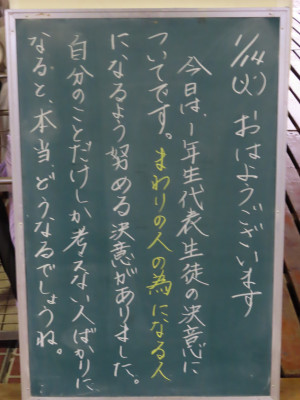 1/14(火) おはようございます
今日は、1年生代表生徒の決意に
ついてです。まわりの人の為になる人
になるよう努める決意がありました。
自分のことだけしか考えない人ばかりに
なると、本当、どうなるでしょうね。